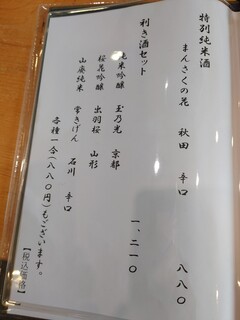 特別純米酒
まんさくの花 秋田 辛口 八八〇
利き酒セット 一、二一〇
純米吟醸 玉乃光 京都
桜花吟醸 出羽桜 山形
山廃純米 常きげん 石川 辛口
各種一合(八八〇円)もございます。
【税込価格】